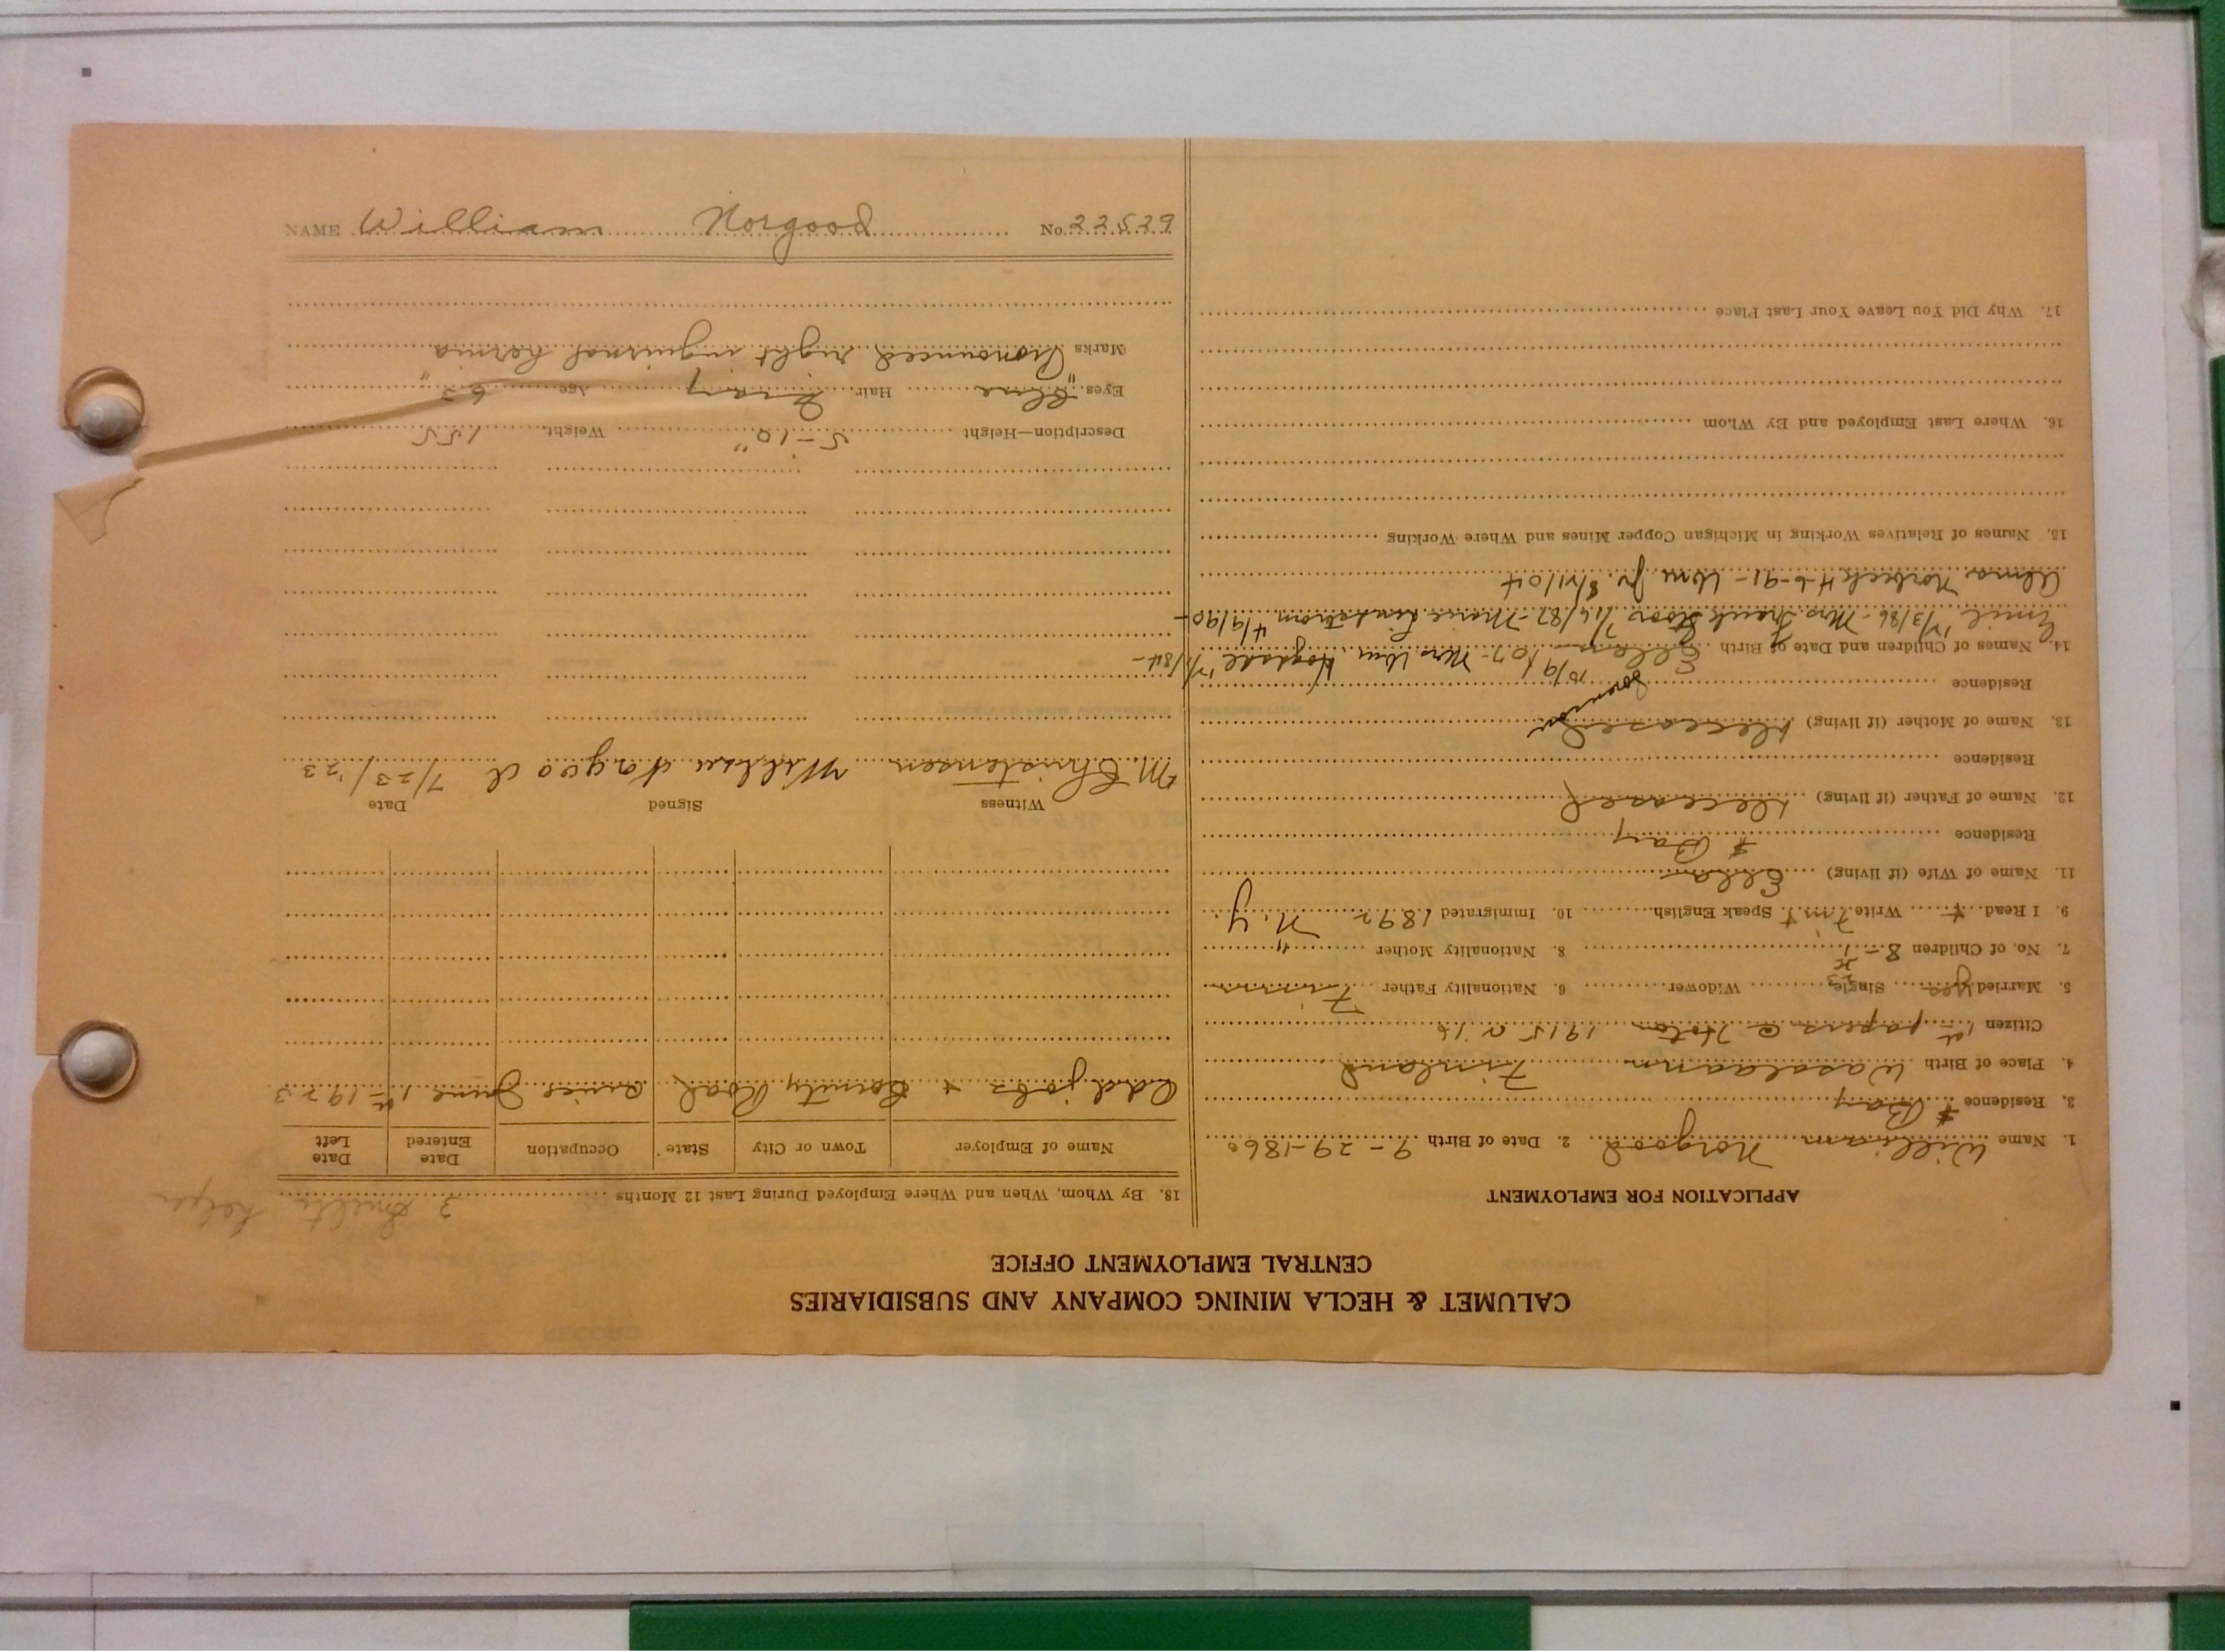 CALUMET & HECLA MINING COMPANY AND SUBSIDIARIES
CENTRAL EMPLOYMENT OFFICE
APPLICATION FOR EMPLOYMENT
1. Name William Norgood 2. Date of Birth 9-29-1860
3. Residence Bay
4. Place of Birth Wasalaann Finland
Citizen 1st papers @ Hoton 1915 or 16
5. Married yes Single Widower 6. Nationality Father Finn
7. No. of Children 8-1 8. Nationality Mother "
9. I Read Write Finn Speak English 10. Immigrated 1892 N.Y
11. Name of Wife (if living) Ella
Residence Bay
12. Name of Father (if living) deceased
Residence
13. Name of Mother (if living) deceased
Residence
14. Names of Children and Date of Birth Ellen 10/9/07 - Mrs Wm Hogdal
Emil 1/3/86 - Mrs Frank Stoor 7/16/87 - Marie Lindstrom 4/9/90 -
Alma Norbeck 4-6-91 - Wm Jr. 8/21/04
15. Names of Relatives Working in Michigan Copper Mines and Where Working
16. Where Last Employed and By Whom
17. Why Did You Leave Your Last Place
3 Smelter helper
18. By Whom, When and Where Employed During Last 12 Months
Name of Employer Town or City State Occupation Date Entered Date Left
Odd jobs + County Road since June 1st 1923
Witness Signed Date
M. Christensen William Norgood 7/23/'23
Description—Height 5-10" Weight 155
Eyes Blue Hair Gray Age 63
Marks "Pronounced right inguinal hernia"
NAME William Norgood No. 22529